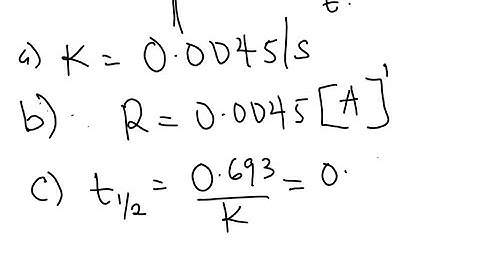 t.
a) K = 0.0045/s
b) R = 0.0045 [A]¹
c) t1/2 = 0.693/K = 0.